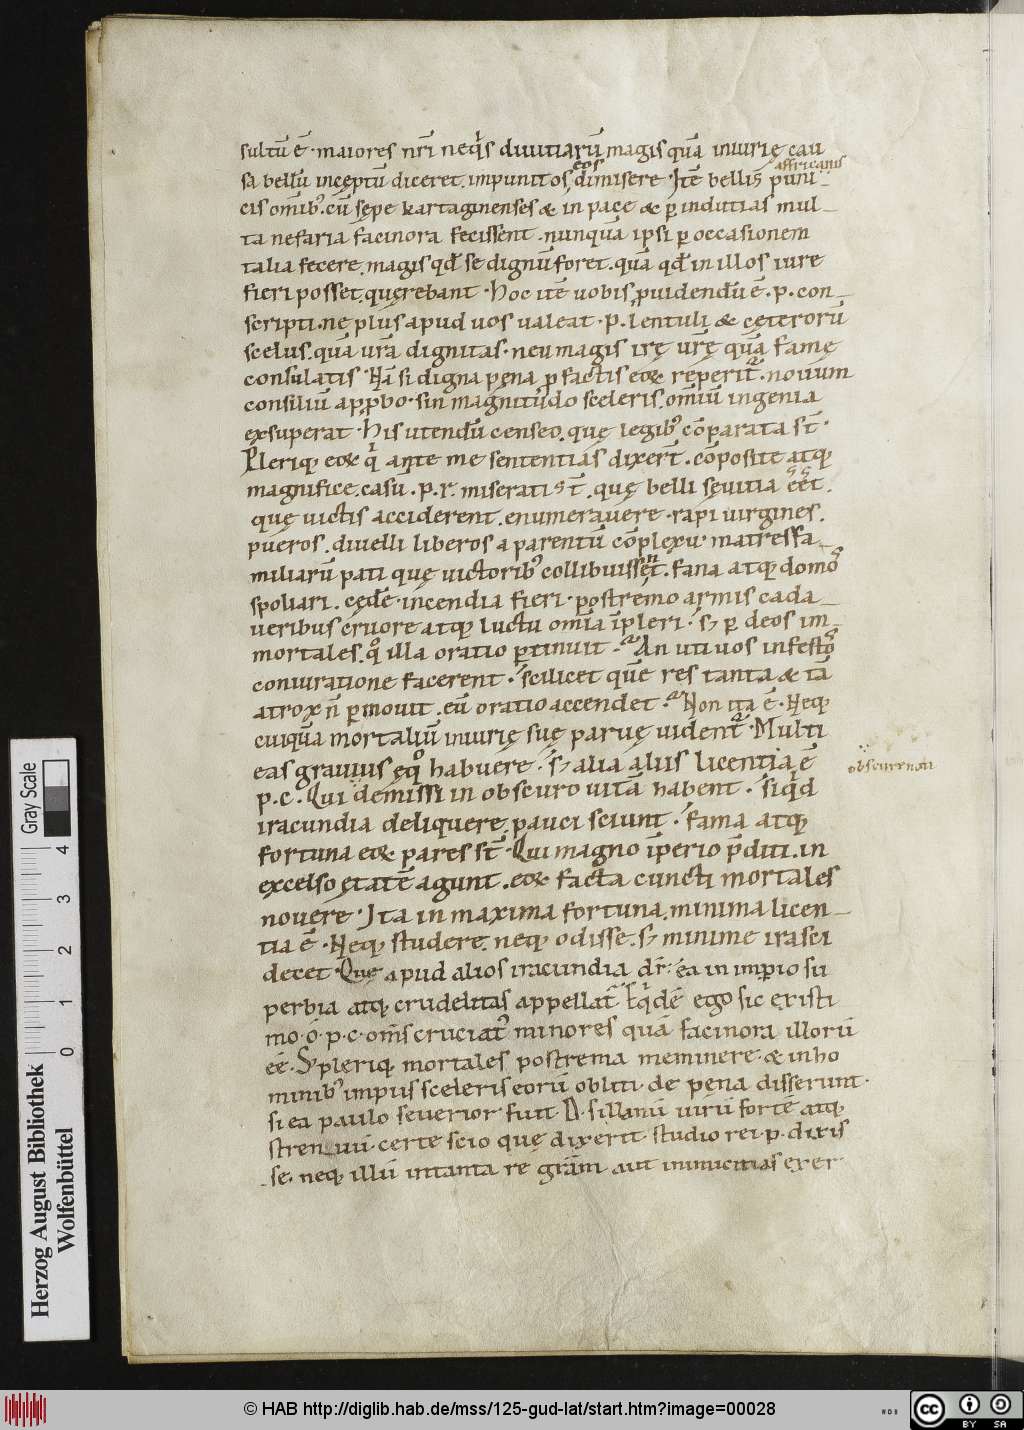 sultū ē · maiores nr̄i neqͥs diuitiarū magis quā iniurię cau
sa bellū incęptū diceret . impunitos eos dimisere · Itē bellis puni
affricanis
cis omībꝰ . cū sępe kartaginenses & in pace & ꝑ indutias mul
ta nefaria facinora fecissent . nunquā ipsi ꝑ occasionem
talia fecere . magis qd̄ se dignū foret . quā qd̄ in illos iure
fieri posset . quęrebant · Hoc itē uobis ꝓuidendū ē . p . con
scripti . ne plus apud uos ualeat · P . lentuli & cęterorū
scelus . quā ur̄a dignitas · neu magis irę ur̄ę quā famę
consulatis · Nā si digna pęna ꝓ factis eoꝝ reperit᷑ . nouum
consiliū apꝓbo · sin magnitudo sceleris . omiū ingenia
exsuperat · His utendū censeo . quę legibꝰ cōparata st̄ ·
Pleriqꝫ eoꝝ qͥ ante me sententias dixer̄t . cōposite atqꝫ
magnifice . casū . p . r . miserati st̄ . quę belli sęuitia eēt .
quę uictis acciderent . enumerauere · rapi uirgines .
pueros . diuelli liberos a parentū cōplexu · matres fa
miliarū pati que uictoribꝰ collibuissent . fana atqꝫ domoꝰ
spoliari . cędē · incendia fieri · postremo armis cada
ueribus cruore atqꝫ luctu omīa īpleri · sꝫ ꝑ deos im
mortales . qͦ illa oratio ꝑtinuit · An uti uos infestoꝰ
coniuratione facerent · scilicet quē res tanta & tā
atrox n̄ ꝑmouit . eū oratio accendet · Non ita ē · Neqꝫ
cuiquā mortaliū iniurię suę paruę uident᷑ · Multi
eas grauius ęqͦ habuere · sꝫ alia aliis licentia ē
p . c . Qui demissi in obscuro uitā habent · siqͥd
obscurenati
iracundia deliquere . pauci sciunt · fama atqꝫ
fortuna eoꝝ pares st̄ · Qui magno īperio p̄diti . in
excelso ętatē agunt . eoꝝ facta cuncti mortales
nouere · Ita in maxima fortuna . minima licen
tia ē · Neqꝫ studere . neqꝫ odisse . sꝫ minime irasci
decet · Quę apud alios iracundia dr̄ : ea in imꝑio su
perbia atqꝫ crudelitas appellat᷑ · Eqͥdē ego sic existi
mo · ó · p · c · om̄s cruciatꝰ minores quā facinora illorū
eē · Sꝫ pleriqꝫ mortales postrema meminere · & in ho
minibꝰ impiis sceleris eorū obliti · de pęna disserunt ·
si ea paulo seuerior fuit · D · sillanū uirū fortē atqꝫ
strenuū · certe scio quę dixerit · studio rei · p . dixis
se . neqꝫ illū in tanta re gr̄am aut inimicitias exer
Herzog August Bibliothek
Wolfenbüttel
Gray Scale
0 1 2 3 4
© HAB http://diglib.hab.de/mss/125-gud-lat/start.htm?image=00028
WDB
cc BY SA